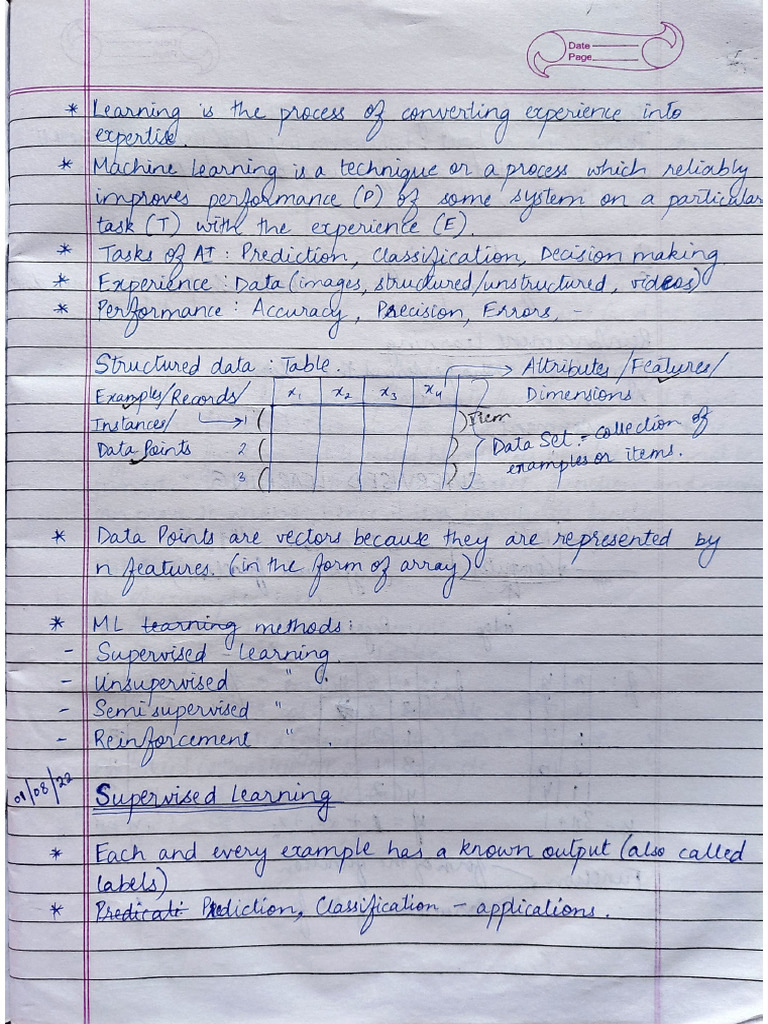 Date
Page
* Learning is the process of converting experience into
expertise.
* Machine Learning is a technique or a process which reliably
improves performance (P) of some system on a particular
task (T) with the experience (E).
* Tasks of AI : Prediction, Classification, Decision making
* Experience : Data (images, structured/unstructured, videos)
* Performance : Accuracy, Precision, Errors, -
Structured data : Table. → Attributes / Features /
Examples/Records/ x1 x2 x3 x4 Dimensions
Instances/ → 1 ( ) Item
Data Points 2 ( ) Data Set :- collection of
3 ( ) examples or items.
* Data Points are vectors because they are represented by
n features. (in the form of array)
* ML learning methods :
- Supervised Learning.
- Unsupervised " .
- Semi supervised "
- Reinforcement " .
01/08/22 Supervised Learning
* Each and every example has a known output (also called
labels)
* Predicati Prediction, Classification - applications.